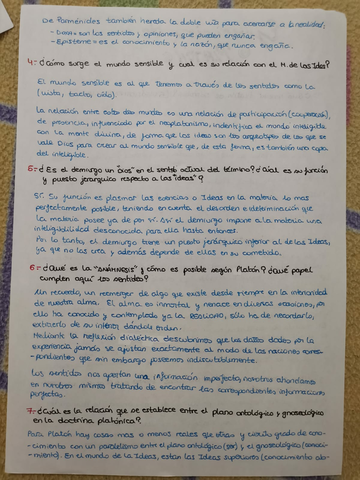 De Parménides también hereda la doble vía para acercarse a la realidad;
- Doxa = son los sentidos, opiniones, que pueden engañar.
- Episteme = es el conocimiento y la razón, que nunca engaña.
4- ¿Cómo surge el mundo sensible y cual es su relación con el M. de las Ideas?
El mundo sensible es al que tenemos a través de los sentidos como la
(vista, tacto, oído).
La relación entre estos dos mundos es una relación de participación (cooperación),
de presencia, influenciado por el neoplatonismo, indentifica el mundo inteligible
con la mente divina, de forma que las ideas son los arquetipos de los que se
vale Dios para crear al mundo sensible que, de esta forma, es también una copia
del inteligible.
5- ¿Es el demiurgo un "Dios" en el sentido actual del término? ¿Cuál es su función
y puesto jerárquico respecto a las Ideas?
Sí. Su función es plasmar las esencias o Ideas en la materia lo mas
perfectamente posible, teniendo en cuenta el desorden e determinación que
la materia posee ya de por sí. Así el demiurgo impone a la materia una
inteligibilidad desconocida para ella hasta entonces.
Por lo tanto, el demiurgo tiene un puesto jerárquico inferior al de las Ideas,
ya que no las crea y además depende de ellas en su cometido.
6- ¿Qué es la "anámnesis" y cómo es posible según Platón? ¿Qué papel
cumplen aquí los sentidos?
Un recuerdo, un reemerger de algo que existe desde siempre en la interioridad
de nuestra alma. El alma es inmortal y renace en diversas ocasiones, por
ello ha conocido y contemplado ya la REALIDAD, sólo ha de recordarlo,
extraerlo de su interior dándole orden.
Mediante la reflexión dialéctica descubrimos que los datos dados por la
experiencia jamás se ajustan exactamente al modo de las nociones corres-
pondientes que sin embargo poseemos indiscutiblemente.
Los sentidos nos aportan una información imperfecta, nosotros ahondamos
en nosotros mismos tratando de encontrar las correspondientes informaciones
perfectas.
7- ¿Cuál es la relación que se establece entre el plano ontológico y gnoseológico
en la doctrina platónica?
Para Platón hay cosas mas o menos reales que otras y cierto grado de cono-
-cimiento con un paralelismo entre el plano ontológico (ser) y el gnoseológico (conoci-
-miento). En el mundo de las Ideas, están las Ideas superiores (conocimiento abs-